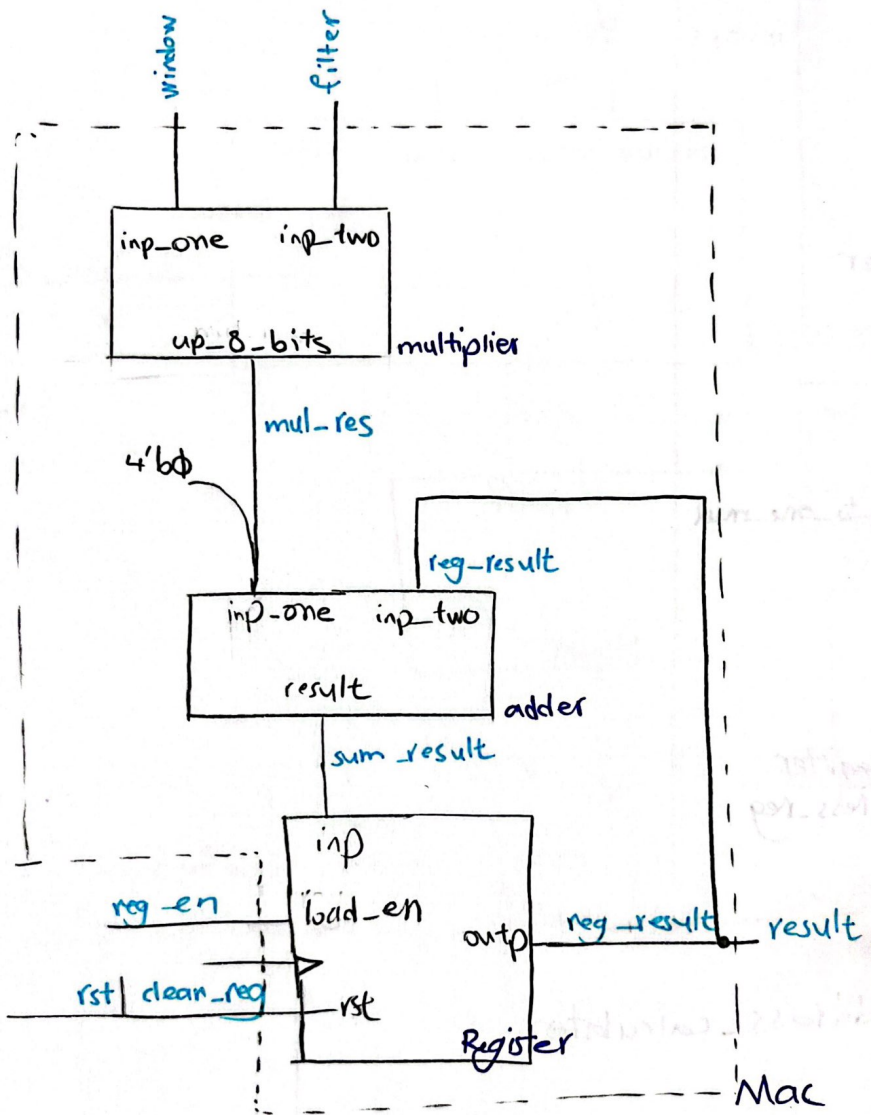 window
filter
inp_one inp_two
up_8_bits
multiplier
mul_res
4'bϕ
reg_result
inp_one inp_two
result
adder
sum_result
inp
reg_en
load_en
outp
reg_result
result
rst| clean_reg
rst
Register
Mac